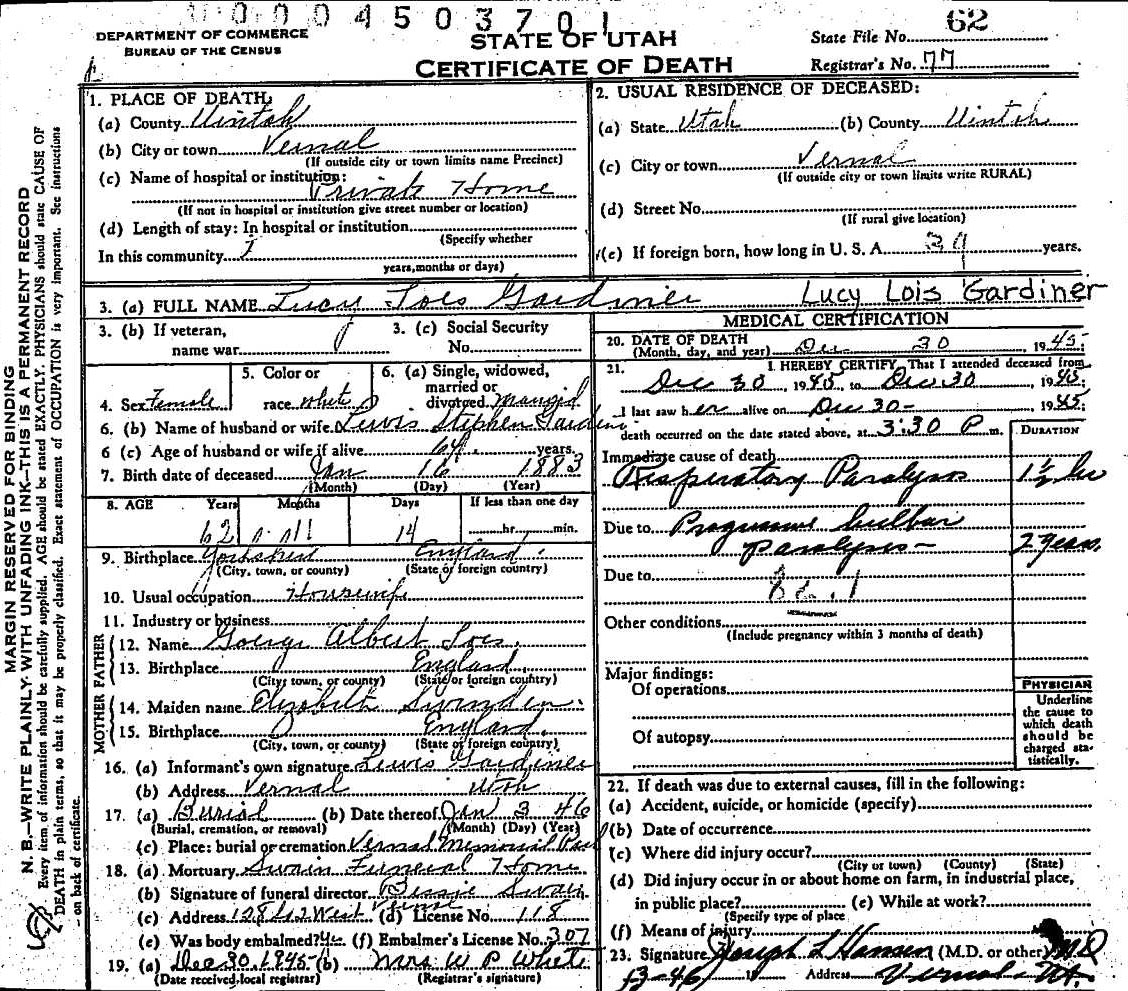 0004503701
DEPARTMENT OF COMMERCE
BUREAU OF THE CENSUS
STATE OF UTAH
CERTIFICATE OF DEATH
State File No. 62
Registrar's No. 77
MARGIN RESERVED FOR BINDING
N. B.—WRITE PLAINLY WITH UNFADING INK—THIS IS A PERMANENT RECORD
Every item of information should be carefully supplied. AGE should be stated EXACTLY. PHYSICIANS should state CAUSE OF
DEATH in plain terms, so that it may be properly classified. Exact statement of OCCUPATION is very important. See instructions
on back of certificate.
1. PLACE OF DEATH:
(a) County Uintah
(b) City or town Vernal
(If outside city or town limits name Precinct)
(c) Name of hospital or institution:
Private Home
(If not in hospital or institution give street number or location)
(d) Length of stay: In hospital or institution
(Specify whether
In this community
years, months or days)
2. USUAL RESIDENCE OF DECEASED:
(a) State Utah (b) County Uintah
(c) City or town Vernal
(If outside city or town limits write RURAL)
(d) Street No.
(If rural give location)
(e) If foreign born, how long in U. S. A. 39 years.
3. (a) FULL NAME Lucy Lois Gardiner Lucy Lois Gardiner
3. (b) If veteran,
name war
3. (c) Social Security
No.
4. Sex Female
5. Color or
race White
6. (a) Single, widowed,
married or
divorced Married
6. (b) Name of husband or wife Lewis Stephen Gardiner
6 (c) Age of husband or wife if alive 64 years.
7. Birth date of deceased Jan 16 1883
(Month) (Day) (Year)
8. AGE Years Months Days If less than one day
62 11 14 hr. min.
9. Birthplace England
(City, town, or county) (State or foreign country)
10. Usual occupation Housewife
11. Industry or business
FATHER
12. Name George Albert Lois
13. Birthplace England
(City, town, or county) (State or foreign country)
MOTHER
14. Maiden name Elizabeth Swinden
15. Birthplace England
(City, town, or county) (State or foreign country)
16. (a) Informant's own signature Lewis Gardiner
(b) Address Vernal Utah
17. (a) Burial (b) Date thereof Jan 3 46
(Burial, cremation, or removal) (Month) (Day) (Year)
(c) Place: burial or cremation Vernal Memorial Park
18. (a) Mortuary Swain Funeral Home
(b) Signature of funeral director Bessie Swain
(c) Address 128 So 2 West Vernal (d) License No. 118
(e) Was body embalmed? Yes (f) Embalmer's License No. 307
19. (a) Dec 30, 1945 (b) Mrs W P White
(Date received local registrar) (Registrar's signature)
MEDICAL CERTIFICATION
20. DATE OF DEATH
(Month, day, and year) Dec 30 1945.
21. I HEREBY CERTIFY, That I attended deceased from
Dec 30 1945, to Dec 30 1945;
I last saw her alive on Dec 30 - 1945;
death occurred on the date stated above, at 3:30 P m.
DURATION
Immediate cause of death
Respiratory Paralysis 1½ hr
Due to Progressive bulbar
paralysis - 2 years.
Due to
82.1
Other conditions
(Include pregnancy within 3 months of death)
Major findings:
Of operations
Of autopsy
PHYSICIAN
Underline
the cause to
which death
should be
charged sta-
tistically.
22. If death was due to external causes, fill in the following:
(a) Accident, suicide, or homicide (specify)
(b) Date of occurrence
(c) Where did injury occur?
(City or town) (County) (State)
(d) Did injury occur in or about home on farm, in industrial place,
in public place? (e) While at work?
(Specify type of place
(f) Means of injury
23. Signature Joseph L Hansen (M.D. or other) MD
1-3-46 Address Vernal - Ut.